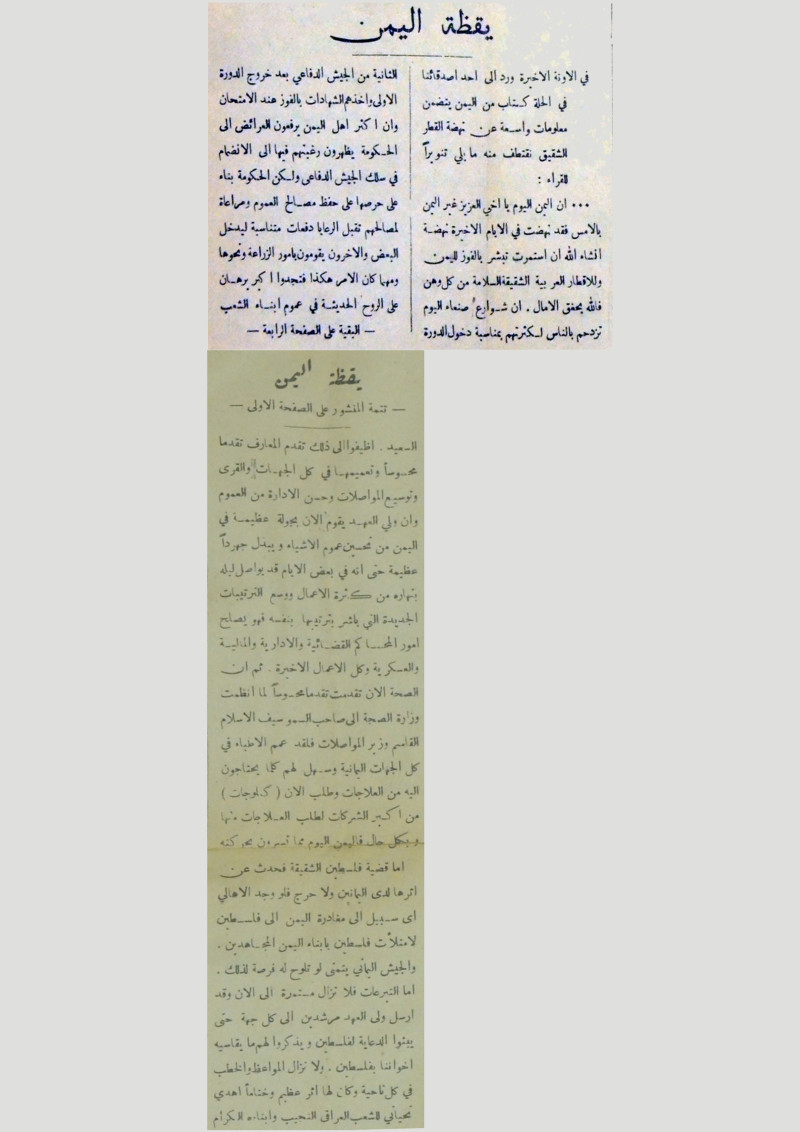 يقظة اليمن
في الاونة الاخيرة ورد الى احد اصدقائنا
في الحلة كتاب من اليمن يتضمن
معلومات واسعة عن نهضة القطر
الشقيق نقتطف منه ما يلي تنويراً
للقراء :
... ان اليمن اليوم يا اخي العزيز غير اليمن
بالامس فقد نهضت في الايام الاخيرة نهضة
انشاء الله ان استمرت تبشر بالفوز لليمن
وللاقطار العربية الشقيقة السلامة من كل وهن
فالله يحقق الامال . ان شوارع صنعاء اليوم
تزدحم بالناس لكثرتهم بمناسبة دخول الدورة
الثانية من الجيش الدفاعي بعد خروج الدورة
الاولى واخذهم الشهادات بالفوز عند الامتحان
وان اكثر اهل اليمن يرفعون العرائض الى
الحكومة يظهرون رغبتهم فيها الى الانضمام
في سلك الجيش الدفاعى ولكن الحكومة بناء
على حرصها على حفظ مصالح العموم ومراعاة
لمصالحهم تقبل الرعايا دفعات متناسبة ليدخل
البعض والاخرون يقومون بامور الزراعة ونحوها
ومهما كان الامر هكذا فتجدوا اكبر برهان
على الروح الحديثة في عموم ابناء الشعب
— البقية على الصفحة الرابعة —
يقظة اليمن
— تتمة المنشور على الصفحة الاولى —
السعيد . اظيفوا الى ذلك تقدم المعارف تقدما
محسوساً وتعميمها في كل الجهات والقرى
وتوسيع المواصلات وحسن الادارة من العموم
وان ولي العهد يقوم الان بجولة عظيمة في
اليمن من تحسين عموم الاشياء ويبدل جهرداً
عظيمة حتى انه في بعض الايام قد يواصل ليله
بنهاره من كثرة الاعمال ووسع الترتيبات
الجديدة التي باشر بترتيبها بنفسه فهو يصلح
امور المحاكم القضائية والادارية والمالية
والعسكرية وكل الاعمال الاخيرة . ثم ان
الصحة الان تقدمت تقدما محسوساً لما انظمت
وزارة الصحة الى صاحب السمو سيف الاسلام
القاسم وزير المواصلات فلقد عمم الاطباء في
كل الجهات اليمانية وسهل لهم كلما يحتاجون
اليه من العلاجات وطلب الان ( كتلوجات )
من اكبر الشركات لطلب العلاجات منها
وبكل حال فاليمن اليوم مما تسرون بحركته
اما قضية فلسطين الشقيقة فحدث عن
اثرها لدى اليمانين ولا حرج فلو وجد الاهالي
اى سبيل الى مغادرة اليمن الى فلسطين
لامتلأت فلسطين بابناء اليمن المجاهدين .
والجيش اليماني يتمنى لو تلوح له فرصة لذلك .
اما التبرعات فلا تزال مستمرة الى الان وقد
ارسل ولى العهد مرشدين الى كل جهة حتى
يبثوا الدعاية لفلسطين ويذكروا لهم ما يقاسيه
اخواننا بفلسطين . ولا تزال المواعظ والخطب
في كل ناحية وكان لها اثر عظيم وختاماً اهدي
تحياتي للشعب العراقى النجيب وابناءه الكرام